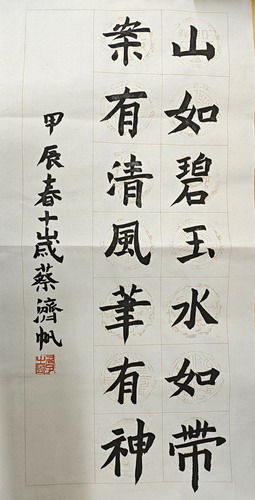 山如碧玉水如帶
案有清風筆有神
甲辰春十歲蔡濟帆